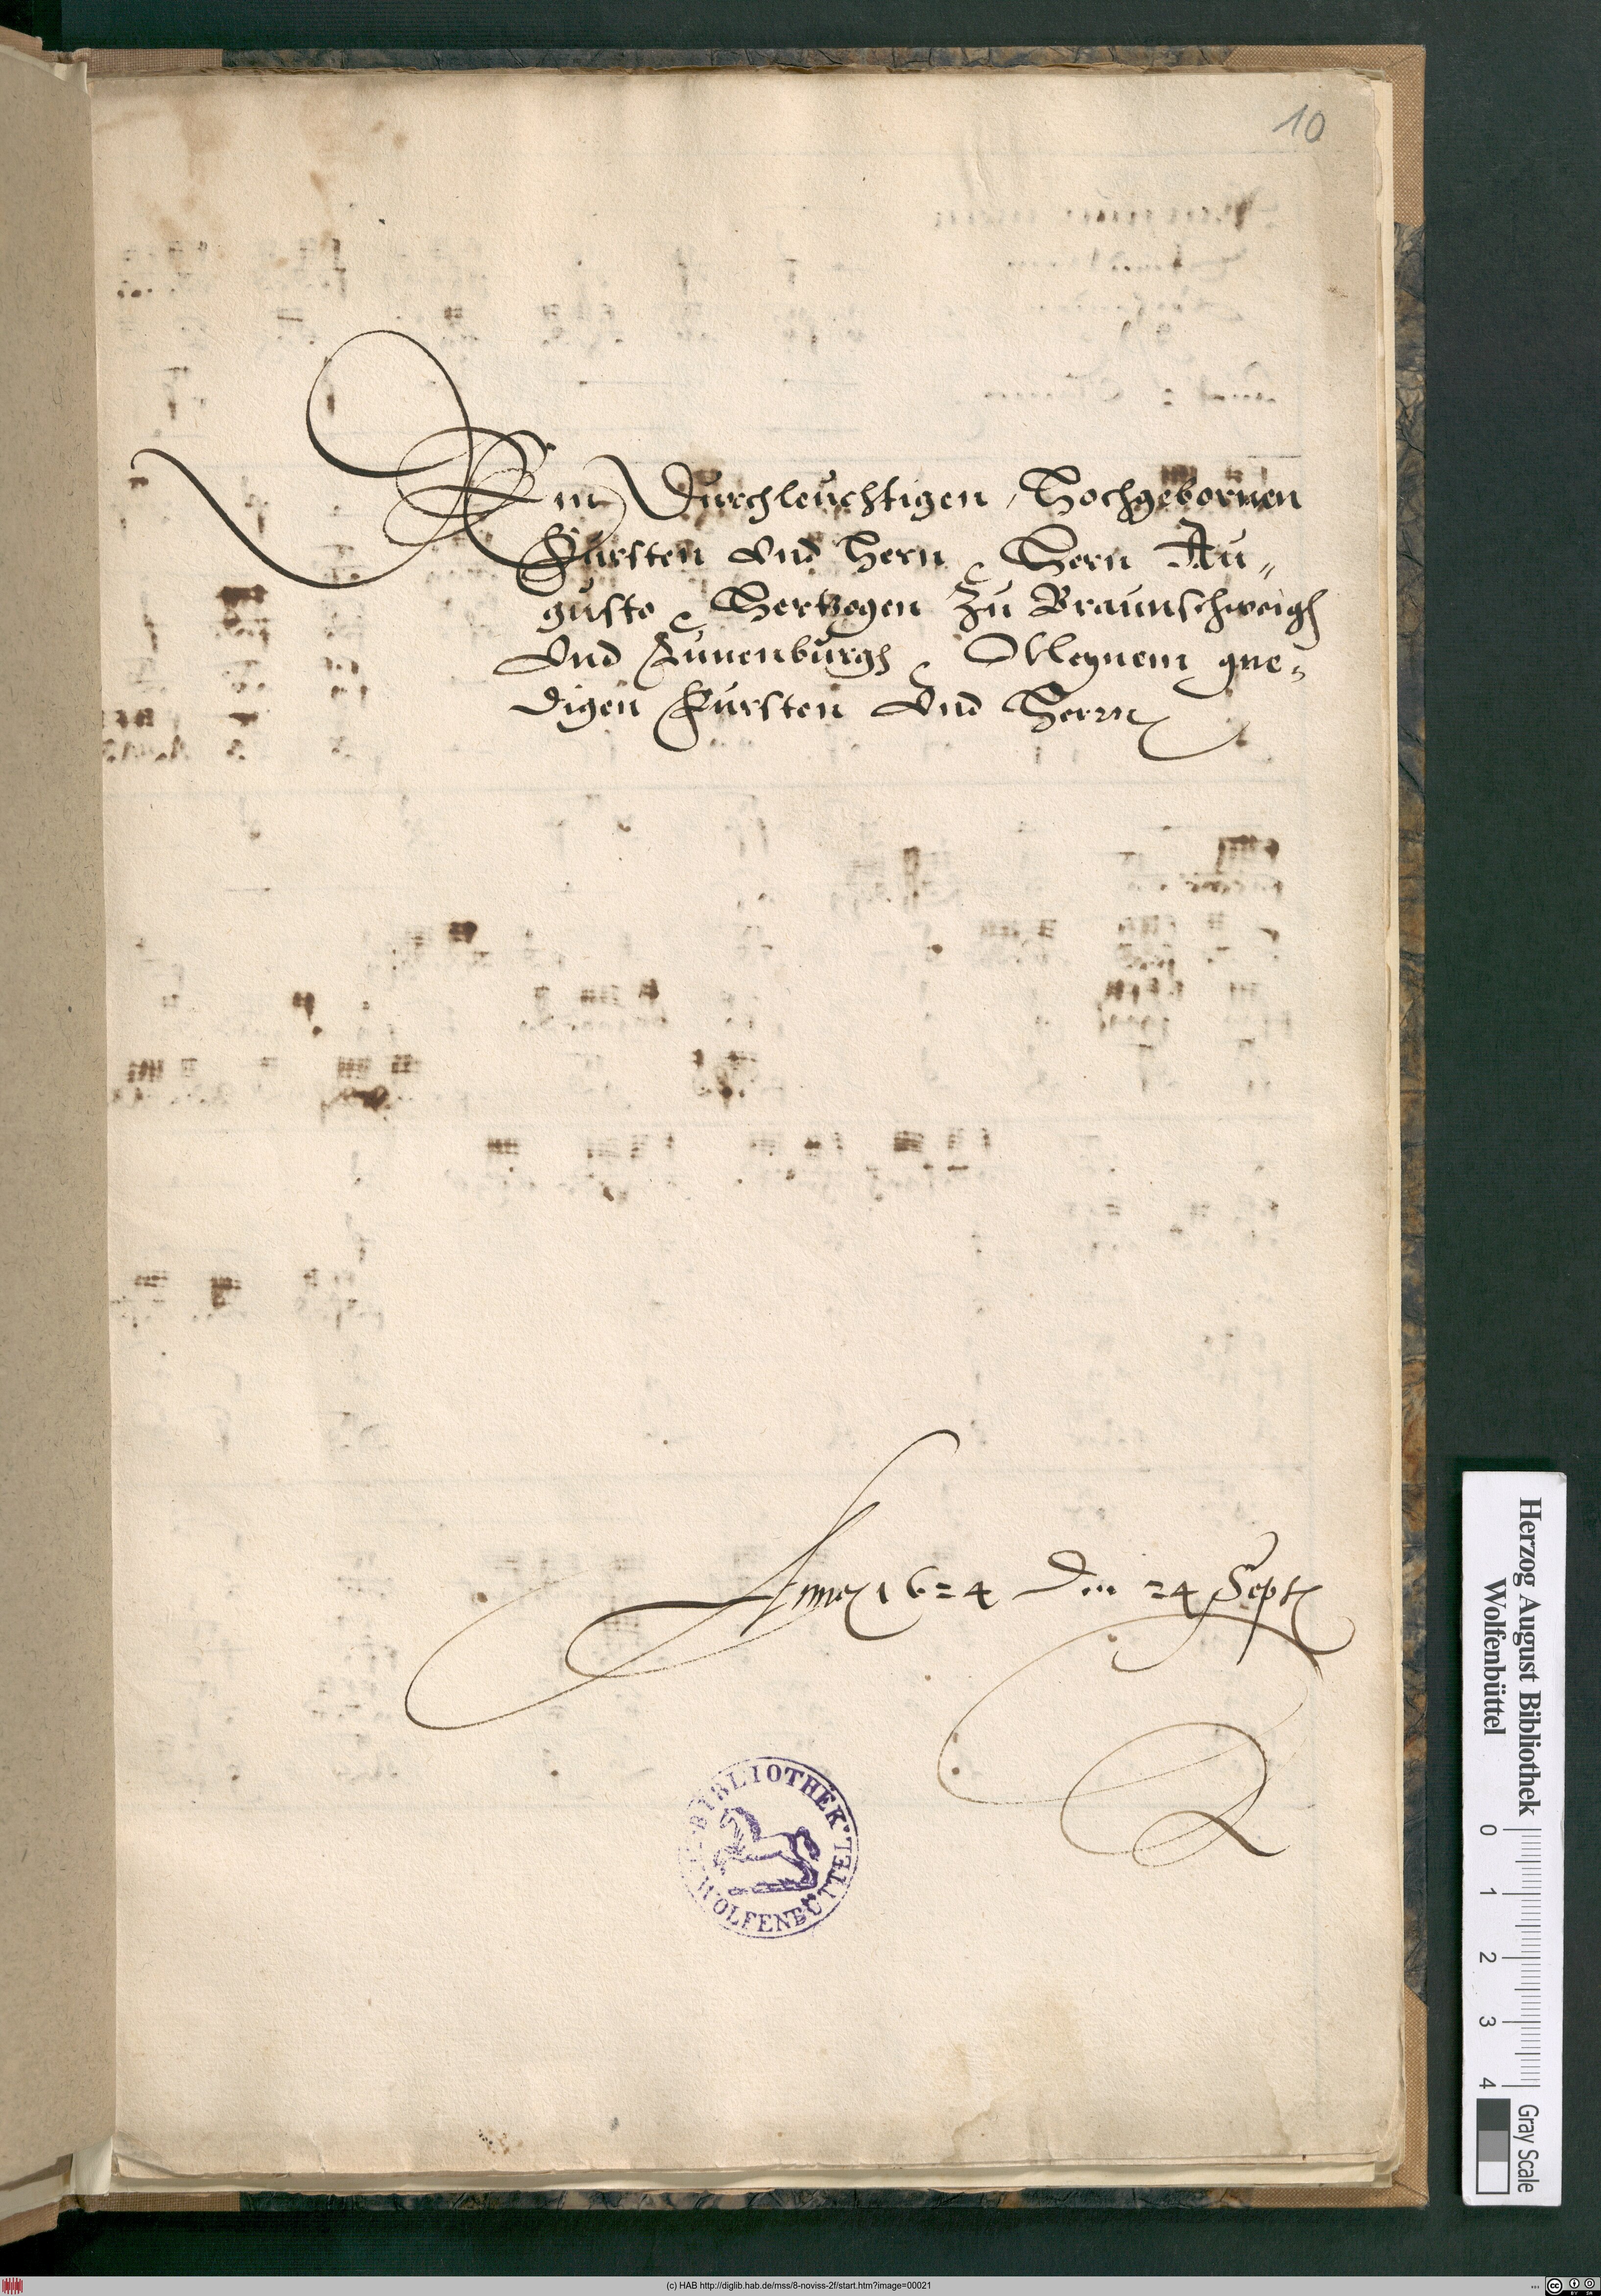 10
Dem Durchleuchtigen, Hochgebornen
Fursten vnd Hern, Hern Au„
gusto, Hertzogen Zu Braunschweigh
vnd Lunenburgh, Meynem gne„
digen Fursten vnd Herrn
Anno 1624 den 24 Sept
BIBLIOTHEK
WOLFENBÜTTEL
Herzog August Bibliothek
Wolfenbüttel
0 1 2 3 4
Gray Scale
(c) HAB http://diglib.hab.de/mss/8-noviss-2f/start.htm?image=00021